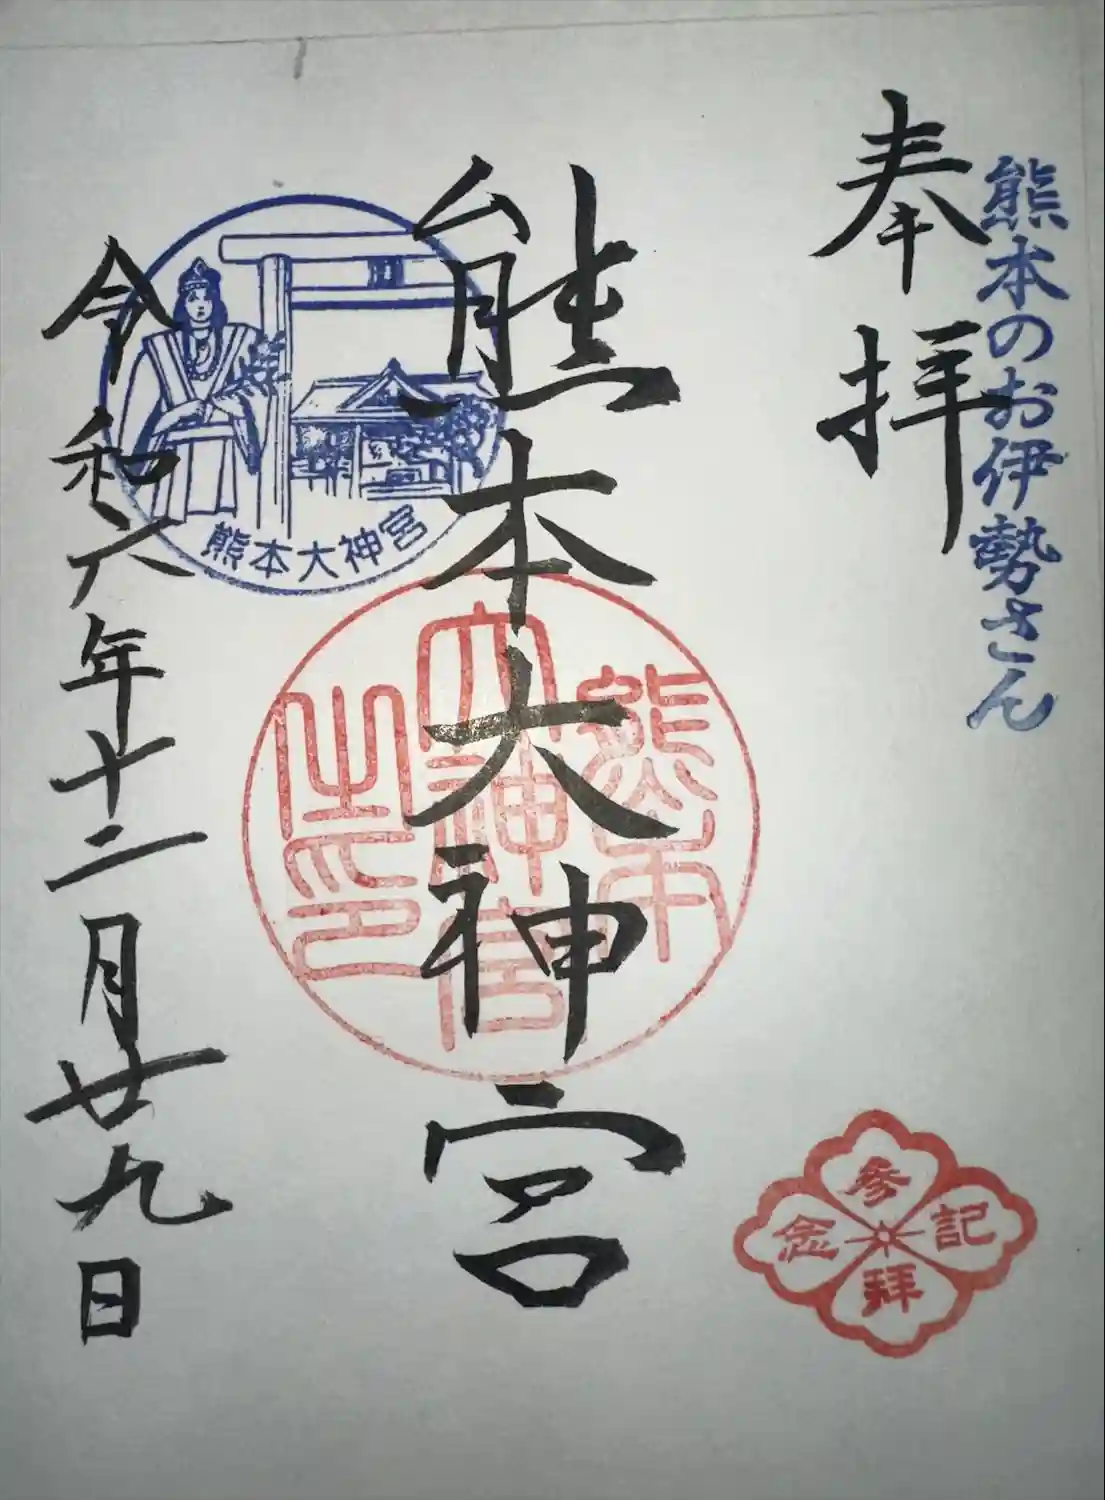 熊本のお伊勢さん
奉拝
熊本大神宮
令和六年十二月廿九日
熊本大神宮
熊本
大神宮
之印
参拝
記念